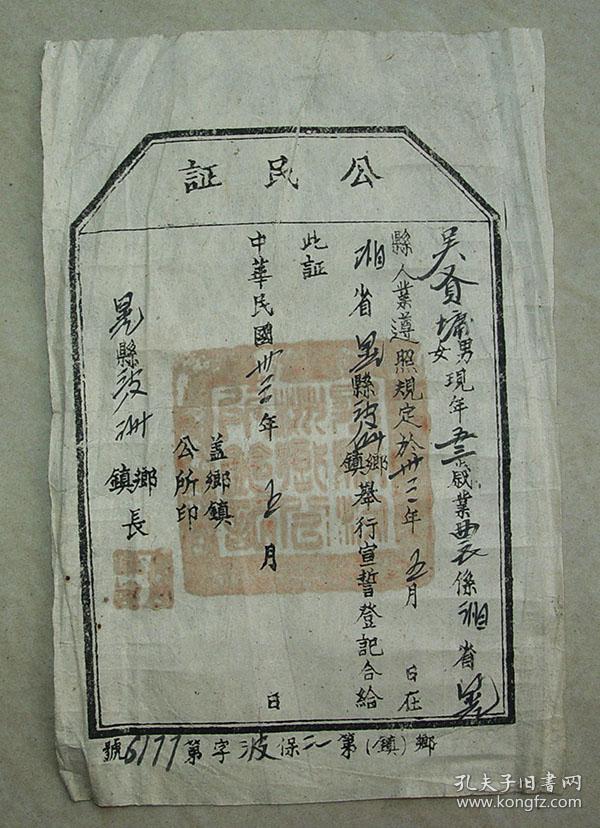 公民証
吳貴墉男女現年五三歲業農係湘省晃
縣人業遵照規定於卅三年五月 日在
湘省晃縣波洲鄉鎮舉行宣誓登記合給
此証
中華民國卅三年五月 日
蓋鄉鎮
公所印
晃縣波洲鄉鎮長
鄉(鎮)第二保波字第6177號
孔夫子旧书网
www.kongfz.com